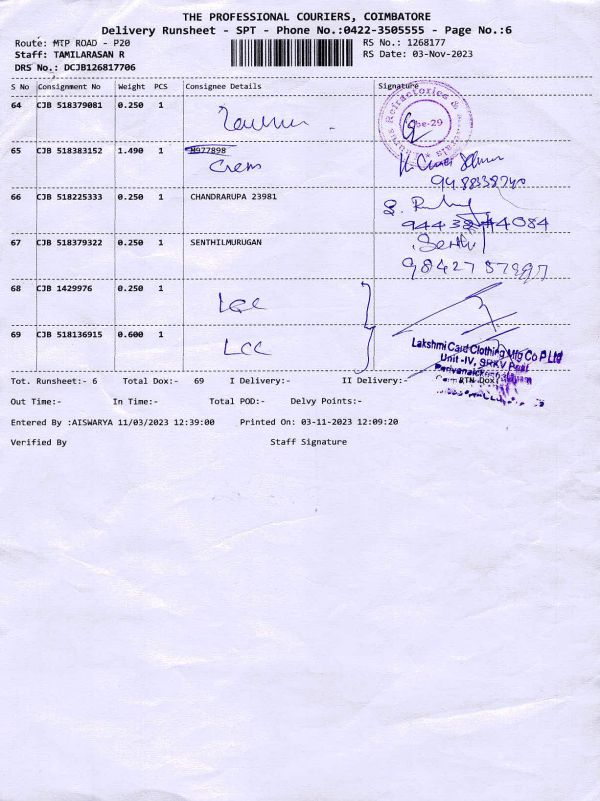 THE PROFESSIONAL COURIERS, COIMBATORE
Delivery Runsheet - SPT - Phone No.:0422-3505555 - Page No.:6
Route: MTP ROAD - P20 RS No.: 1268177
Staff: TAMILARASAN R RS Date: 03-Nov-2023
DRS No.: DCJB126817706
S No Consignment No Weight PCS Consignee Details Signature
64 CJB 518379081 0.250 1
Refractories &
65 CJB 518383152 1.490 1 M977898
9488338740
66 CJB 518225333 0.250 1 CHANDRARUPA 23981
67 CJB 518379322 0.250 1 SENTHILMURUGAN
Senthil
68 CJB 1429976 0.250 1
LCC
69 CJB 518136915 0.600 1
LCC
Lakshmi Card Clothing Mfg Co P Ltd
Unit -IV, SRKV Post
Tot. Runsheet:- 6 Total Dox:- 69 I Delivery:- II Delivery:- RTN Dox:
Out Time:- In Time:- Total POD:- Delvy Points:-
Entered By :AISWARYA 11/03/2023 12:39:00 Printed On: 03-11-2023 12:09:20
Verified By Staff Signature